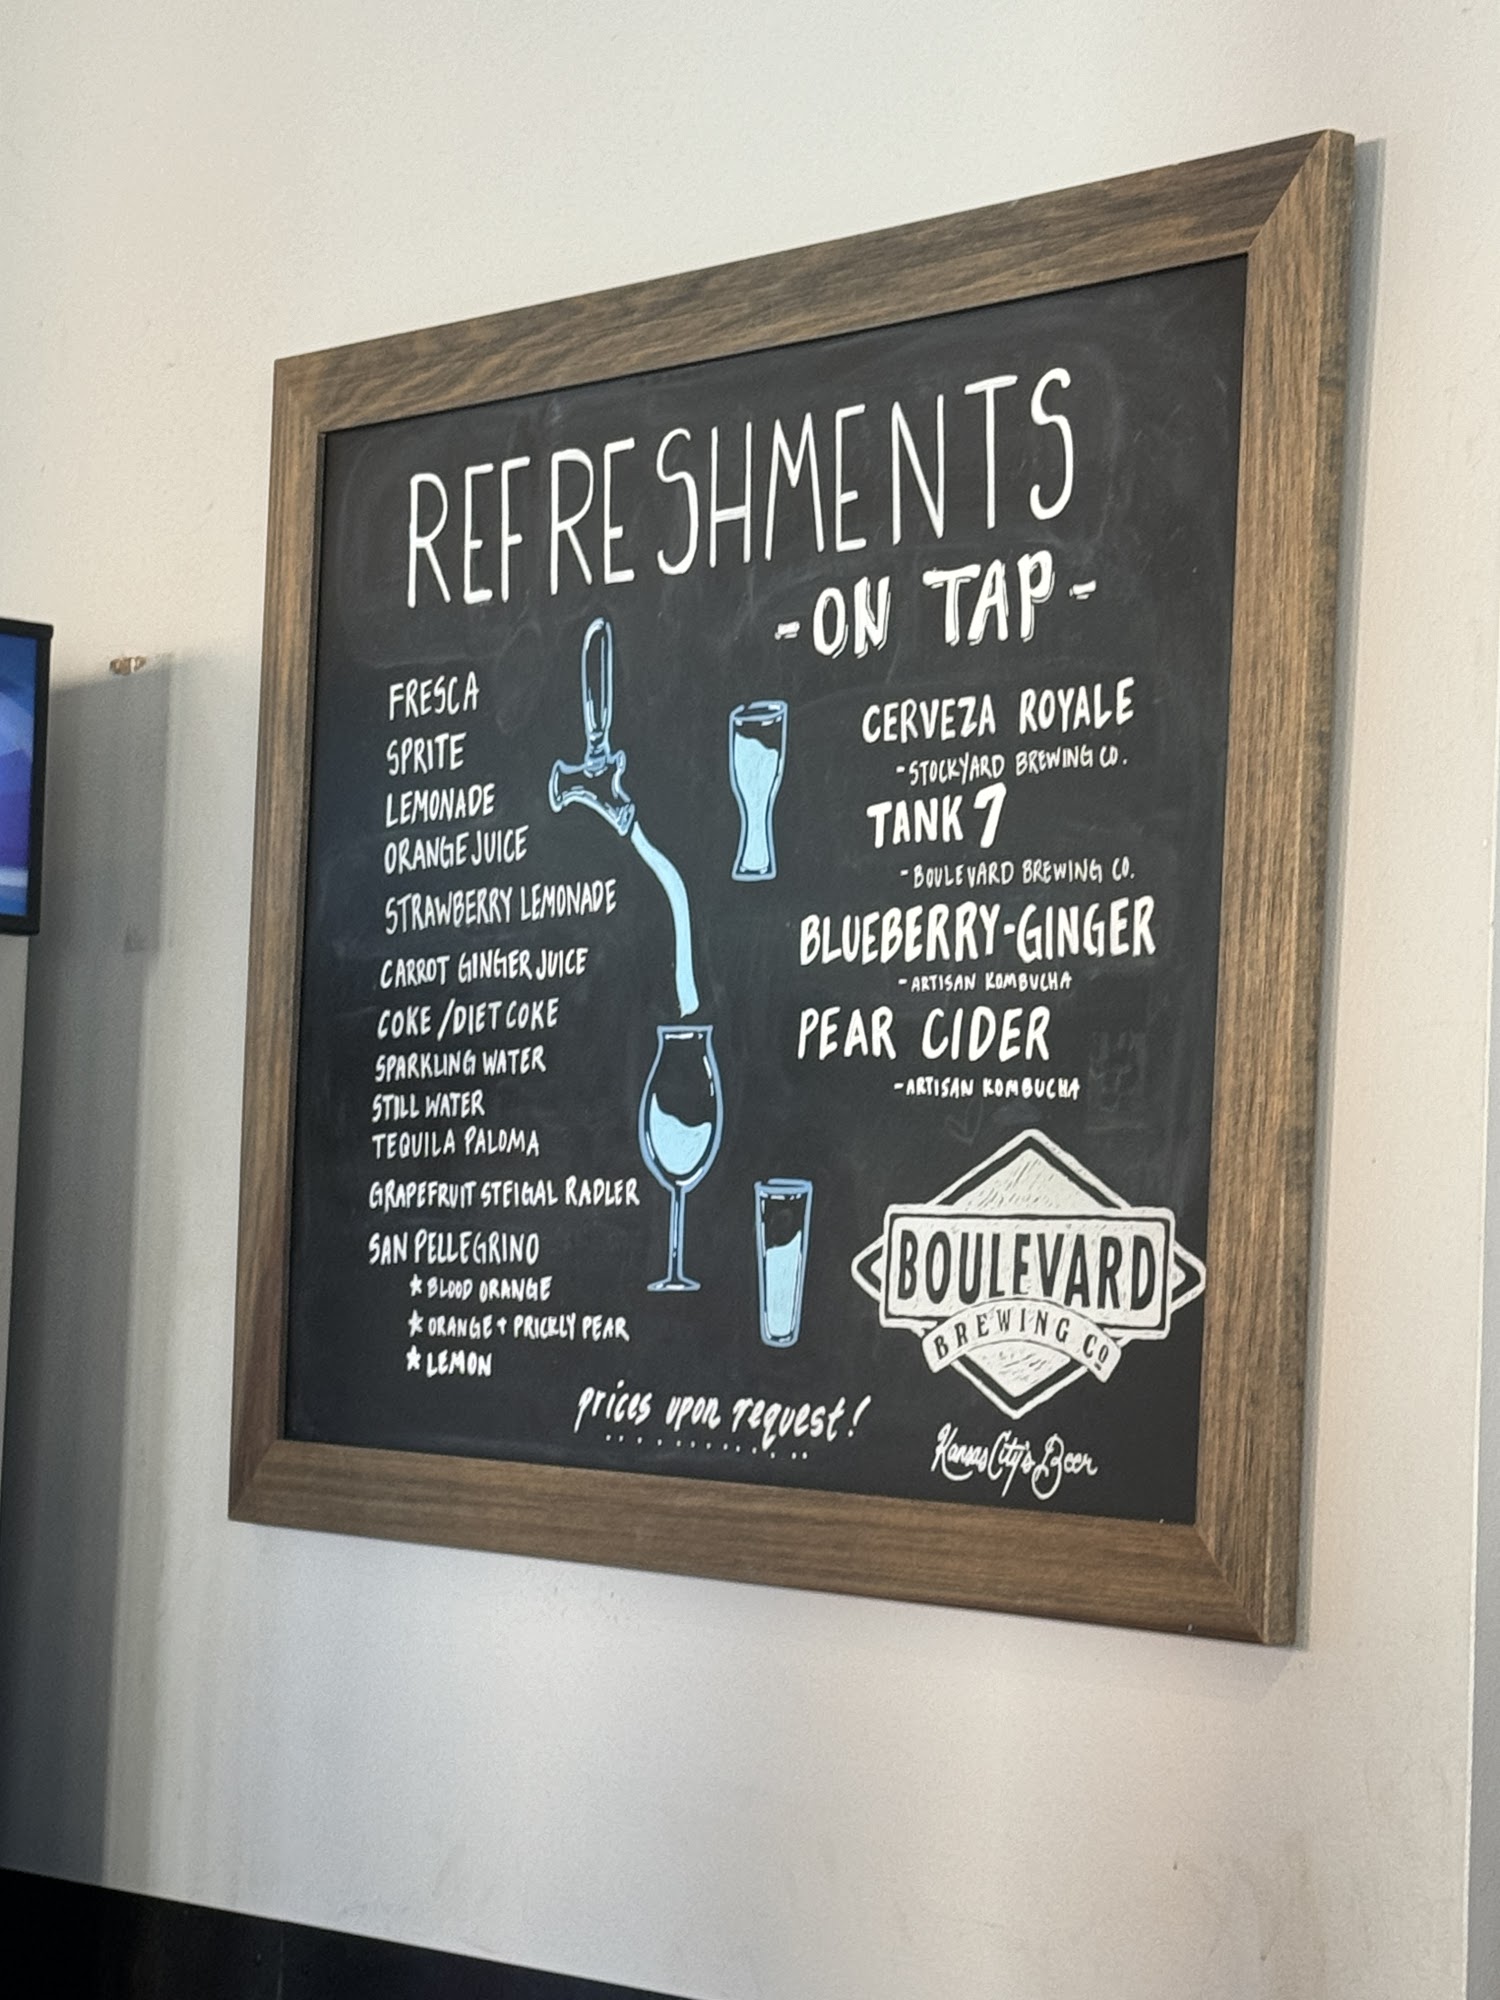 REFRESHMENTS
-ON TAP-
FRESCA
SPRITE
LEMONADE
ORANGE JUICE
STRAWBERRY LEMONADE
CARROT GINGER JUICE
COKE/DIET COKE
SPARKLING WATER
STILL WATER
TEQUILA PALOMA
GRAPEFRUIT STEIGAL RADLER
SAN PELLEGRINO
★ BLOOD ORANGE
★ ORANGE + PRICKLY PEAR
★ LEMON
CERVEZA ROYALE
-STOCKYARD BREWING CO.
TANK 7
-BOULEVARD BREWING CO.
BLUEBERRY-GINGER
-ARTISAN KOMBUCHA
PEAR CIDER
-ARTISAN KOMBUCHA
BOULEVARD
BREWING CO
Kansas City's Beer
prices upon request!